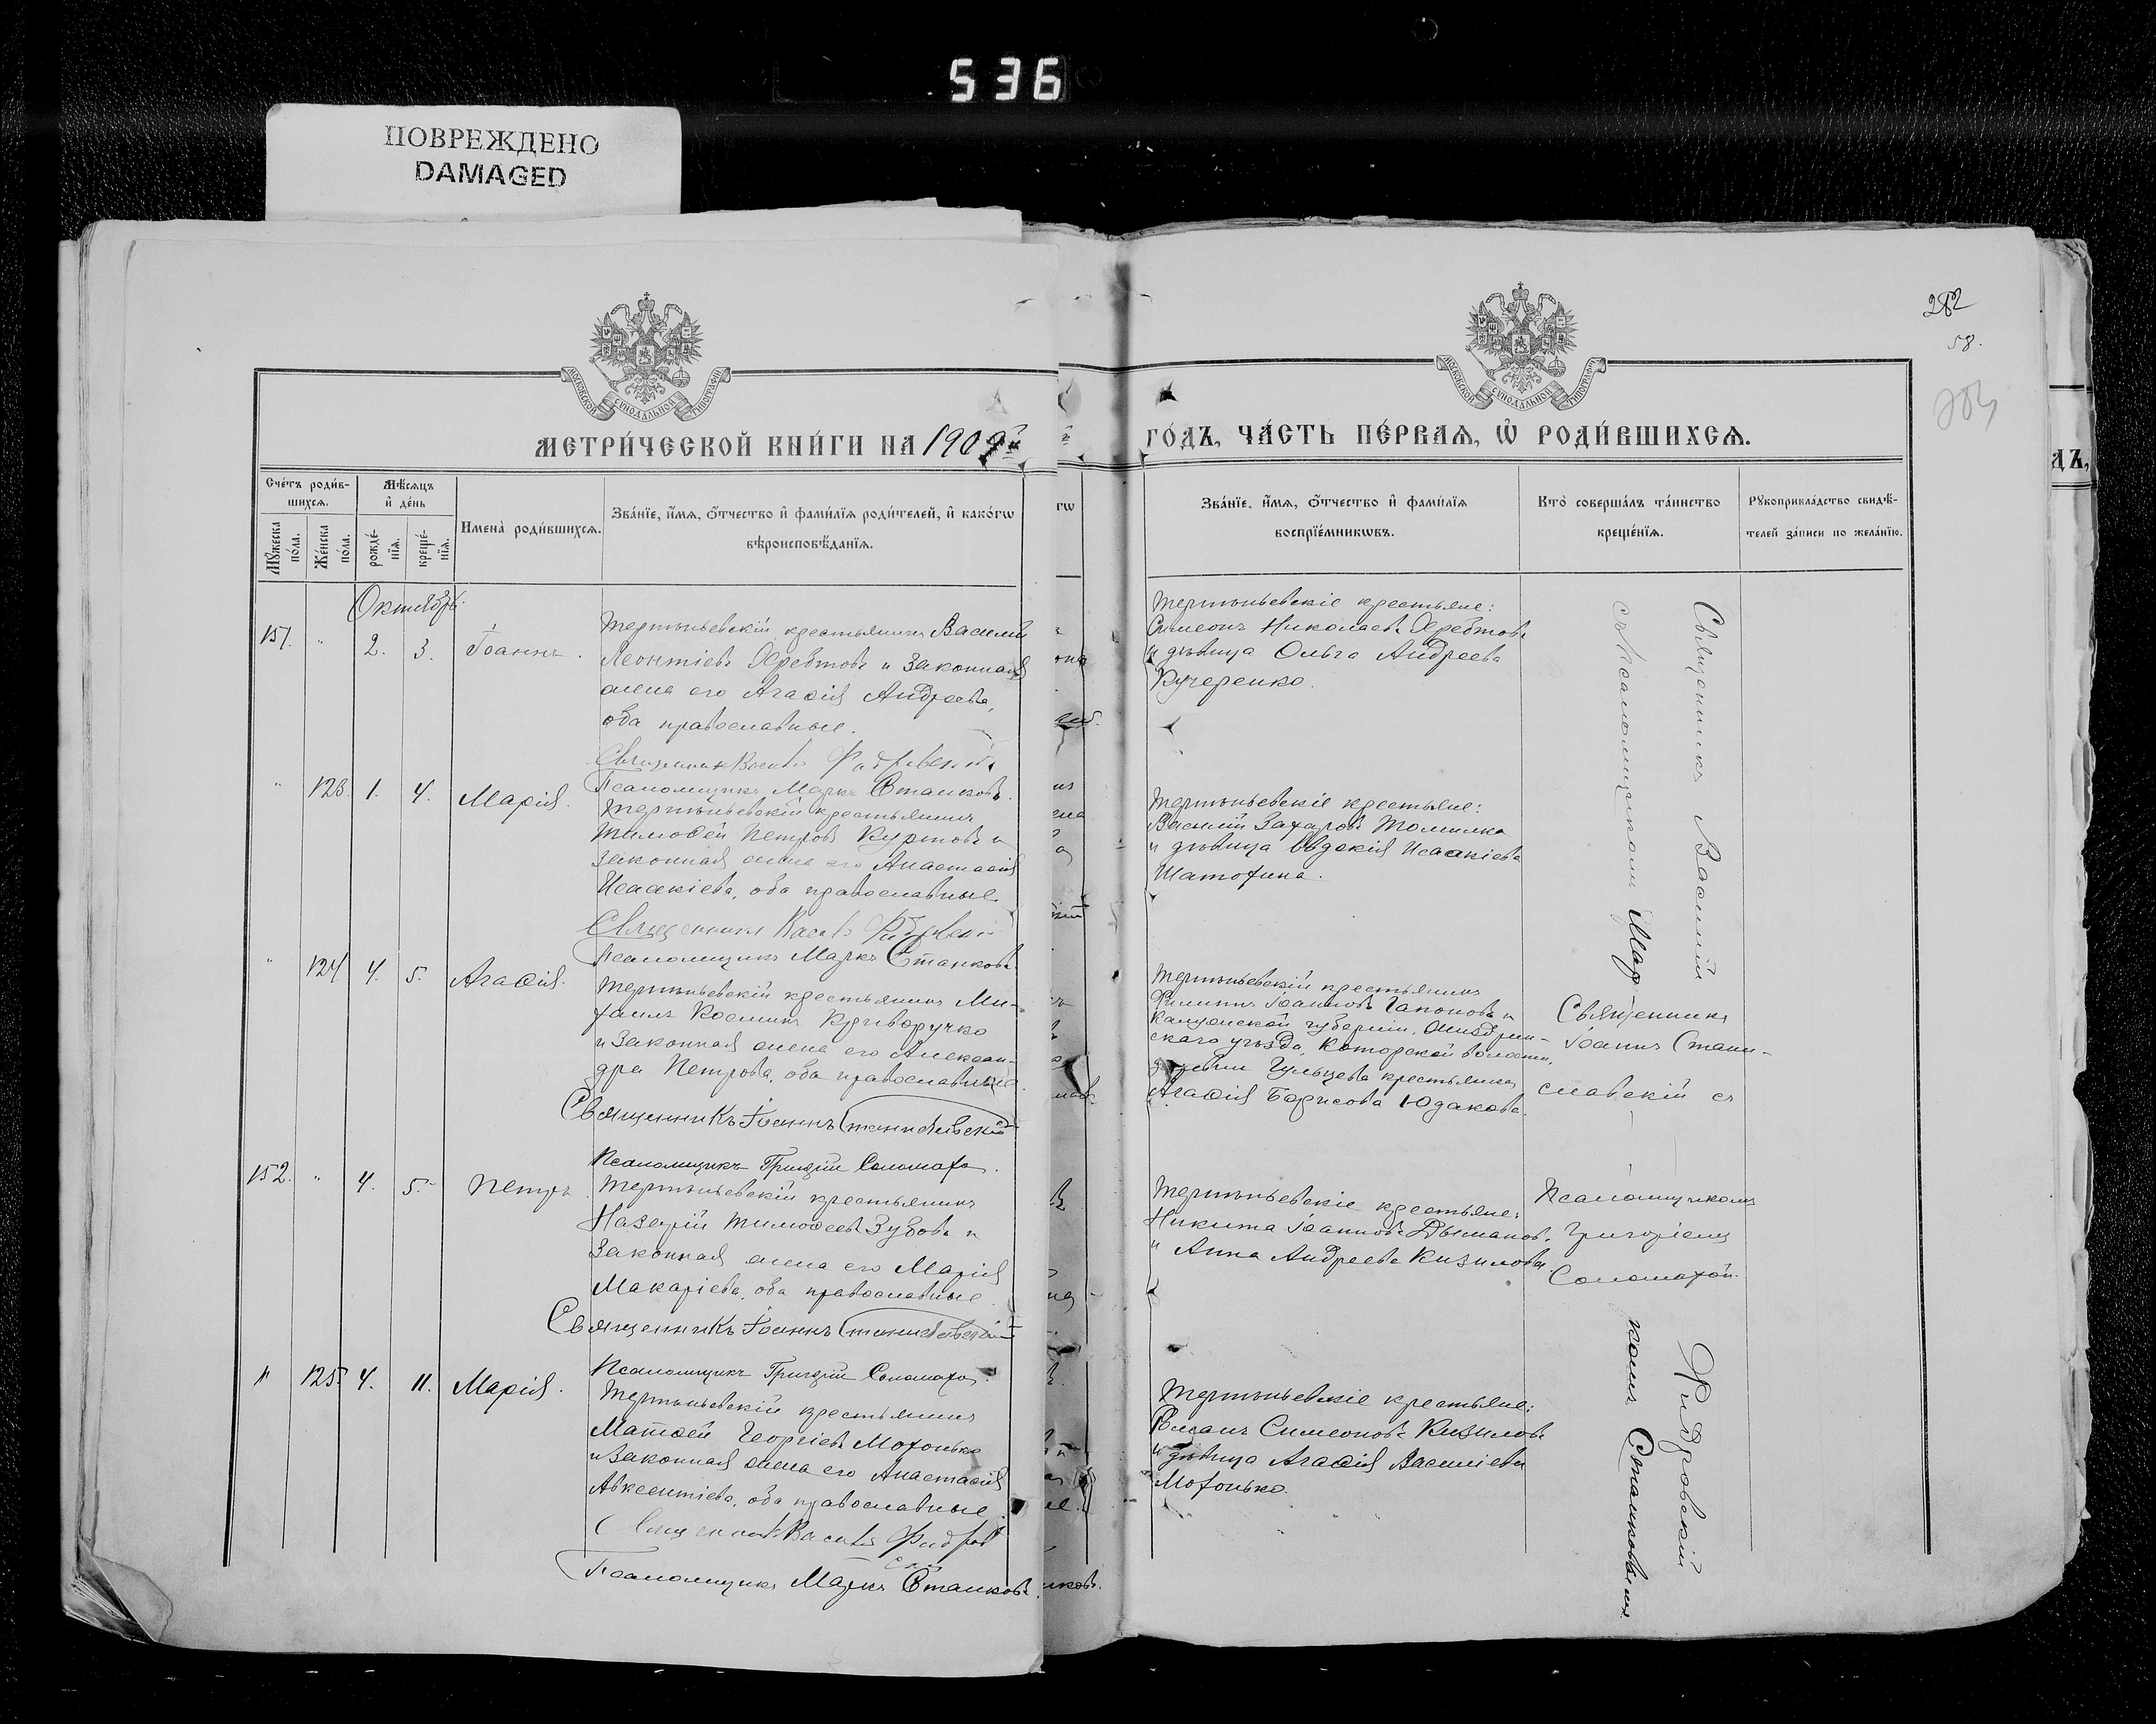 536
ПОВРЕЖДЕНО
DAMAGED
262
58.
МОСКОВСКОЙ СУНОДАЛЬНОЙ ТИПОГРАФІИ
МОСКОВСКОЙ СУНОДАЛЬНОЙ ТИПОГРАФІИ
МЕТРИ́ЧЕСКОЙ КНИ́ГИ НА 1909й
ГО́ДЪ, ЧА́СТЬ ПЕ́РВАѦ, Ѡ҆ РОДИ́ВШИХСѦ.
Сче́тъ роди́в-
шихсѧ.
Мꙋ́жеска
по́ла.
Же́нска
по́ла.
Мѣ́сѧцъ
и҆ де́нь
рожде́-
нїѧ.
креще́-
нїѧ.
Имена̀ роди́вшихсѧ.
Зва́нїе, и҆́мѧ, ѻ҆́тчество и҆ фами́лїѧ роди́телей, и҆ како́гѡ
вѣроисповѣ́данїѧ.
Зва́нїе, и҆́мѧ, ѻ҆́тчество и҆ фами́лїѧ
воспрїе́мникѡвъ.
Кто̀ соверша́лъ та́инство
креще́нїѧ.
Рꙋкоприкла́дство свидѣ́-
телей за́писи по жела́нїю.
Октябрь.
151. " 2. 3. Іоаннъ.
Тертыневскій крестьянинъ Василій
Леонтіевъ Хребтовъ и законная
жена его Агафія Андреева,
оба православные.
Священникъ Василій Фидровскій
Псаломщикъ Маркъ Станковъ.
Тертыневскіе крестьяне:
Симеонъ Николаевъ Хребтовъ
и дѣвица Ольга Андреева
Кучеренко.
" 123. 1. 4. Марія.
Тертыневскій крестьянинъ
Тимофей Петровъ Куртовъ и
законная жена его Анастасія
Исаакіева, оба православные.
Священникъ Василій Фидровскій
Псаломщикъ Маркъ Станковъ
Тертыневскіе крестьяне:
Василій Захаровъ Томилка
и дѣвица Евдокія Исаакіева
Шатохина.
" 124 4. 5. Агафія.
Тертыневскій крестьянинъ Ми-
хаилъ Косминъ Криворучко
и законная жена его Алексан-
дра Петрова, оба православные.
Священникъ Іоаннъ Станиславскій
Псаломщикъ Григорій Соломаха.
Тертыневскій крестьянинъ
Филиппъ Іоанновъ Гапоновъ и
Калужской губерніи, Жиздрин-
скаго уѣзда, Которской волости,
деревни Гульцева крестьянка
Агафія Борисова Юдакова.
Священникъ
Іоаннъ Стани-
славскій съ
Псаломщикомъ
Григоріемъ
Соломахой.
152. " 4. 5. Петръ.
Тертыневскій крестьянинъ
Назарій Тимофеевъ Зубовъ и
законная жена его Марія
Макаріева, оба православные.
Священникъ Іоаннъ Станиславскій
Псаломщикъ Григорій Соломаха.
Тертыневскіе крестьяне:
Никита Іоанновъ Дымановъ
и Анна Андреева Кизилова.
" 125. 4. 11. Марія.
Тертыневскій крестьянинъ
Матфей Георгіевъ Мохонько
и законная жена его Анастасія
Авксентіева, оба православные.
Священникъ Василій Фидров
скій
Псаломщикъ Маркъ Станковъ.
Тертыневскіе крестьяне:
Романъ Симеоновъ Кизиловъ
и дѣвица Агафія Василіева
Мохонько.
Священникъ Василій Фидровскій
съ псаломщикомъ Мар
комъ Станковымъ.